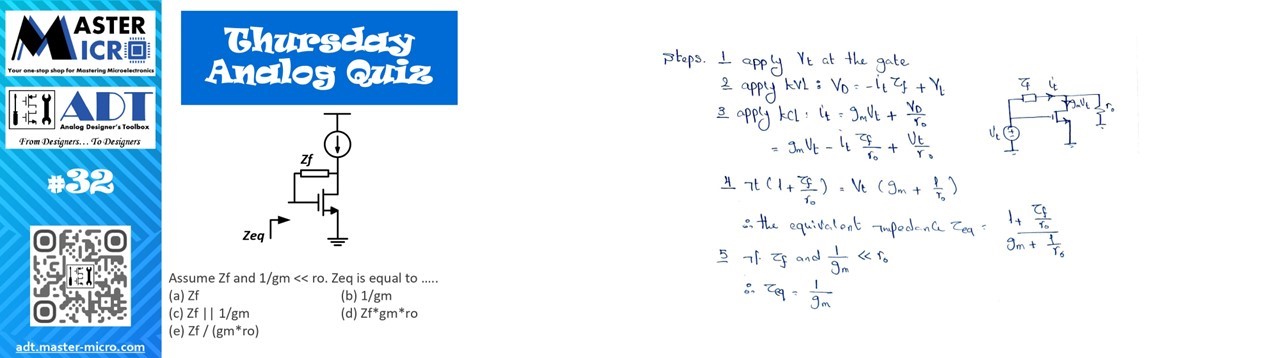 MASTER
MICRO
Your one-stop shop for Mastering Microelectronics
ADT
Analog Designer's Toolbox
From Designers... To Designers
#32
adt.master-micro.com
Thursday
Analog Quiz
Zf
Zeq
Assume Zf and 1/gm << ro. Zeq is equal to .....
(a) Zf (b) 1/gm
(c) Zf || 1/gm (d) Zf*gm*ro
(e) Zf / (gm*ro)
Steps. 1 apply Vt at the gate
2 apply KVL : VD = -it Zf + Vt
3 apply KCL : it = gmVt + VD/ro
= gmVt - it Zf/ro + Vt/ro
4 it (1 + Zf/ro) = Vt (gm + 1/ro)
∴ the equivalent impedance Zeq = (1 + Zf/ro) / (gm + 1/ro)
5 if Zf and 1/gm << ro
∴ Zeq = 1/gm
Zf it
gmVt ro
Vt